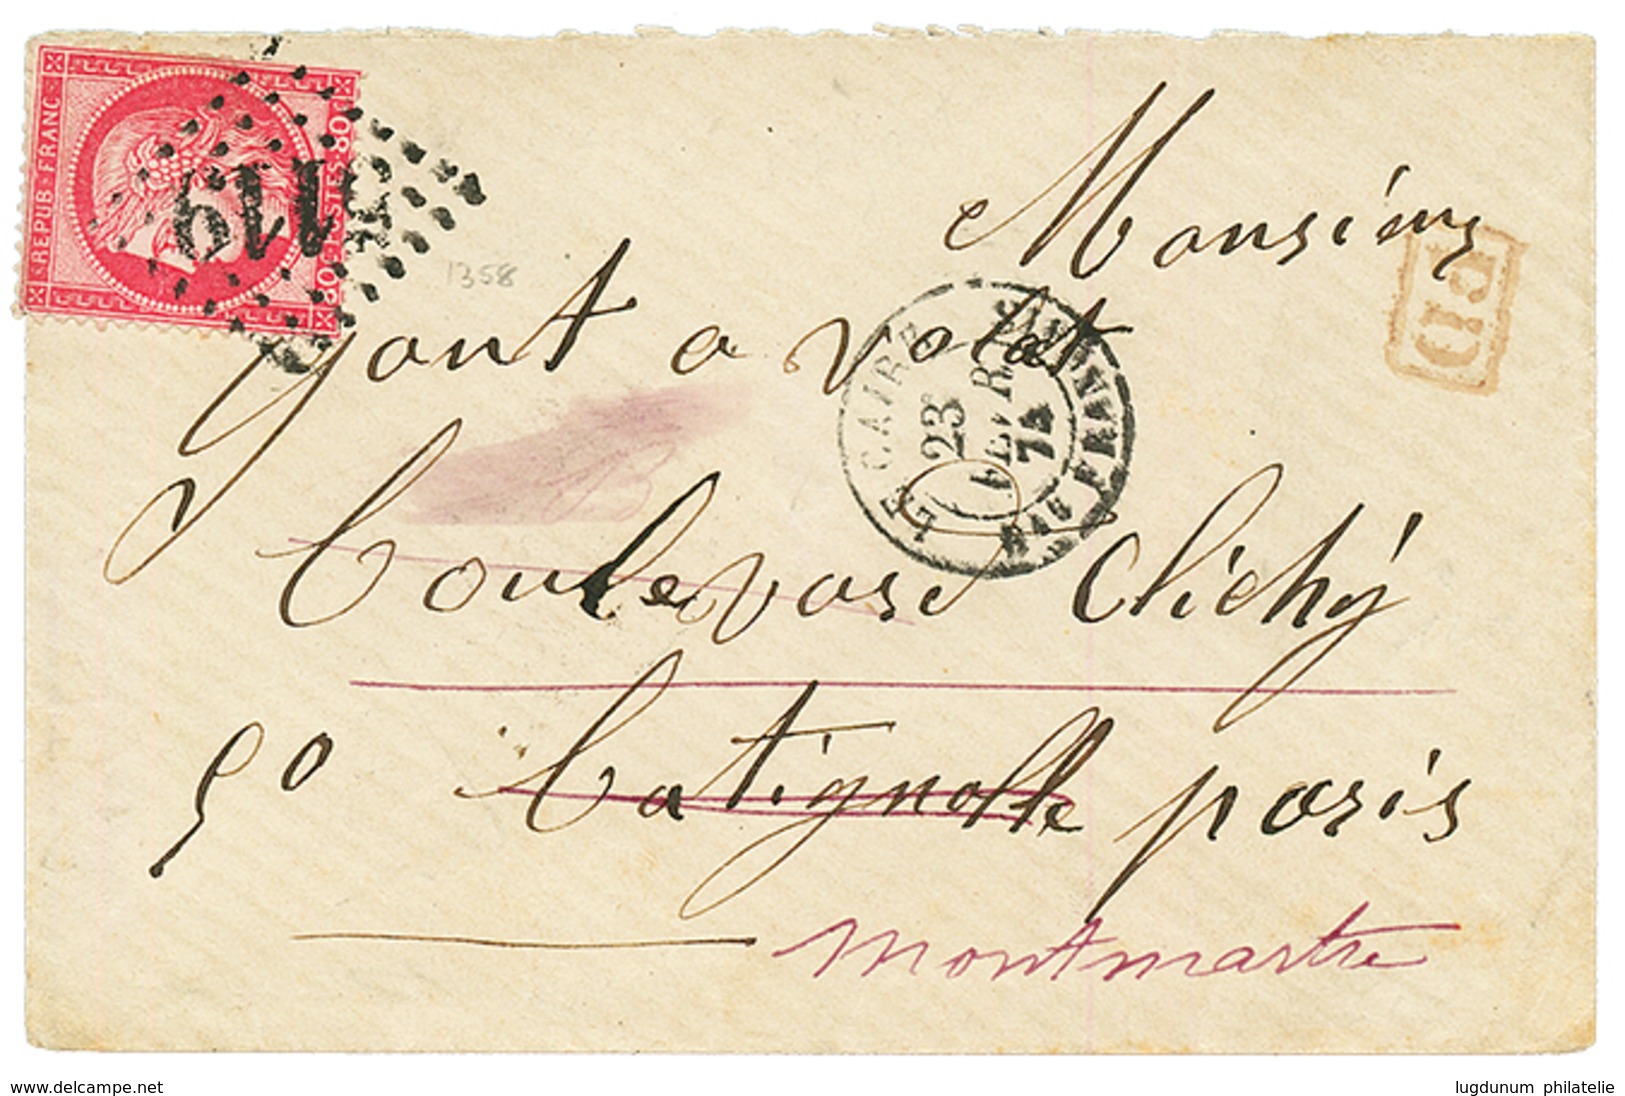 REPUB·FRANC
80 POSTES 80
5119
1358
Monsieur
PD
LE CAIRE
23
FEVR
74
BAU FRANÇAIS
yant a volat
Boulevard Clichÿ
50 Batignolle paris
Montmartre
www.delcampe.net
lugdunum philatelie